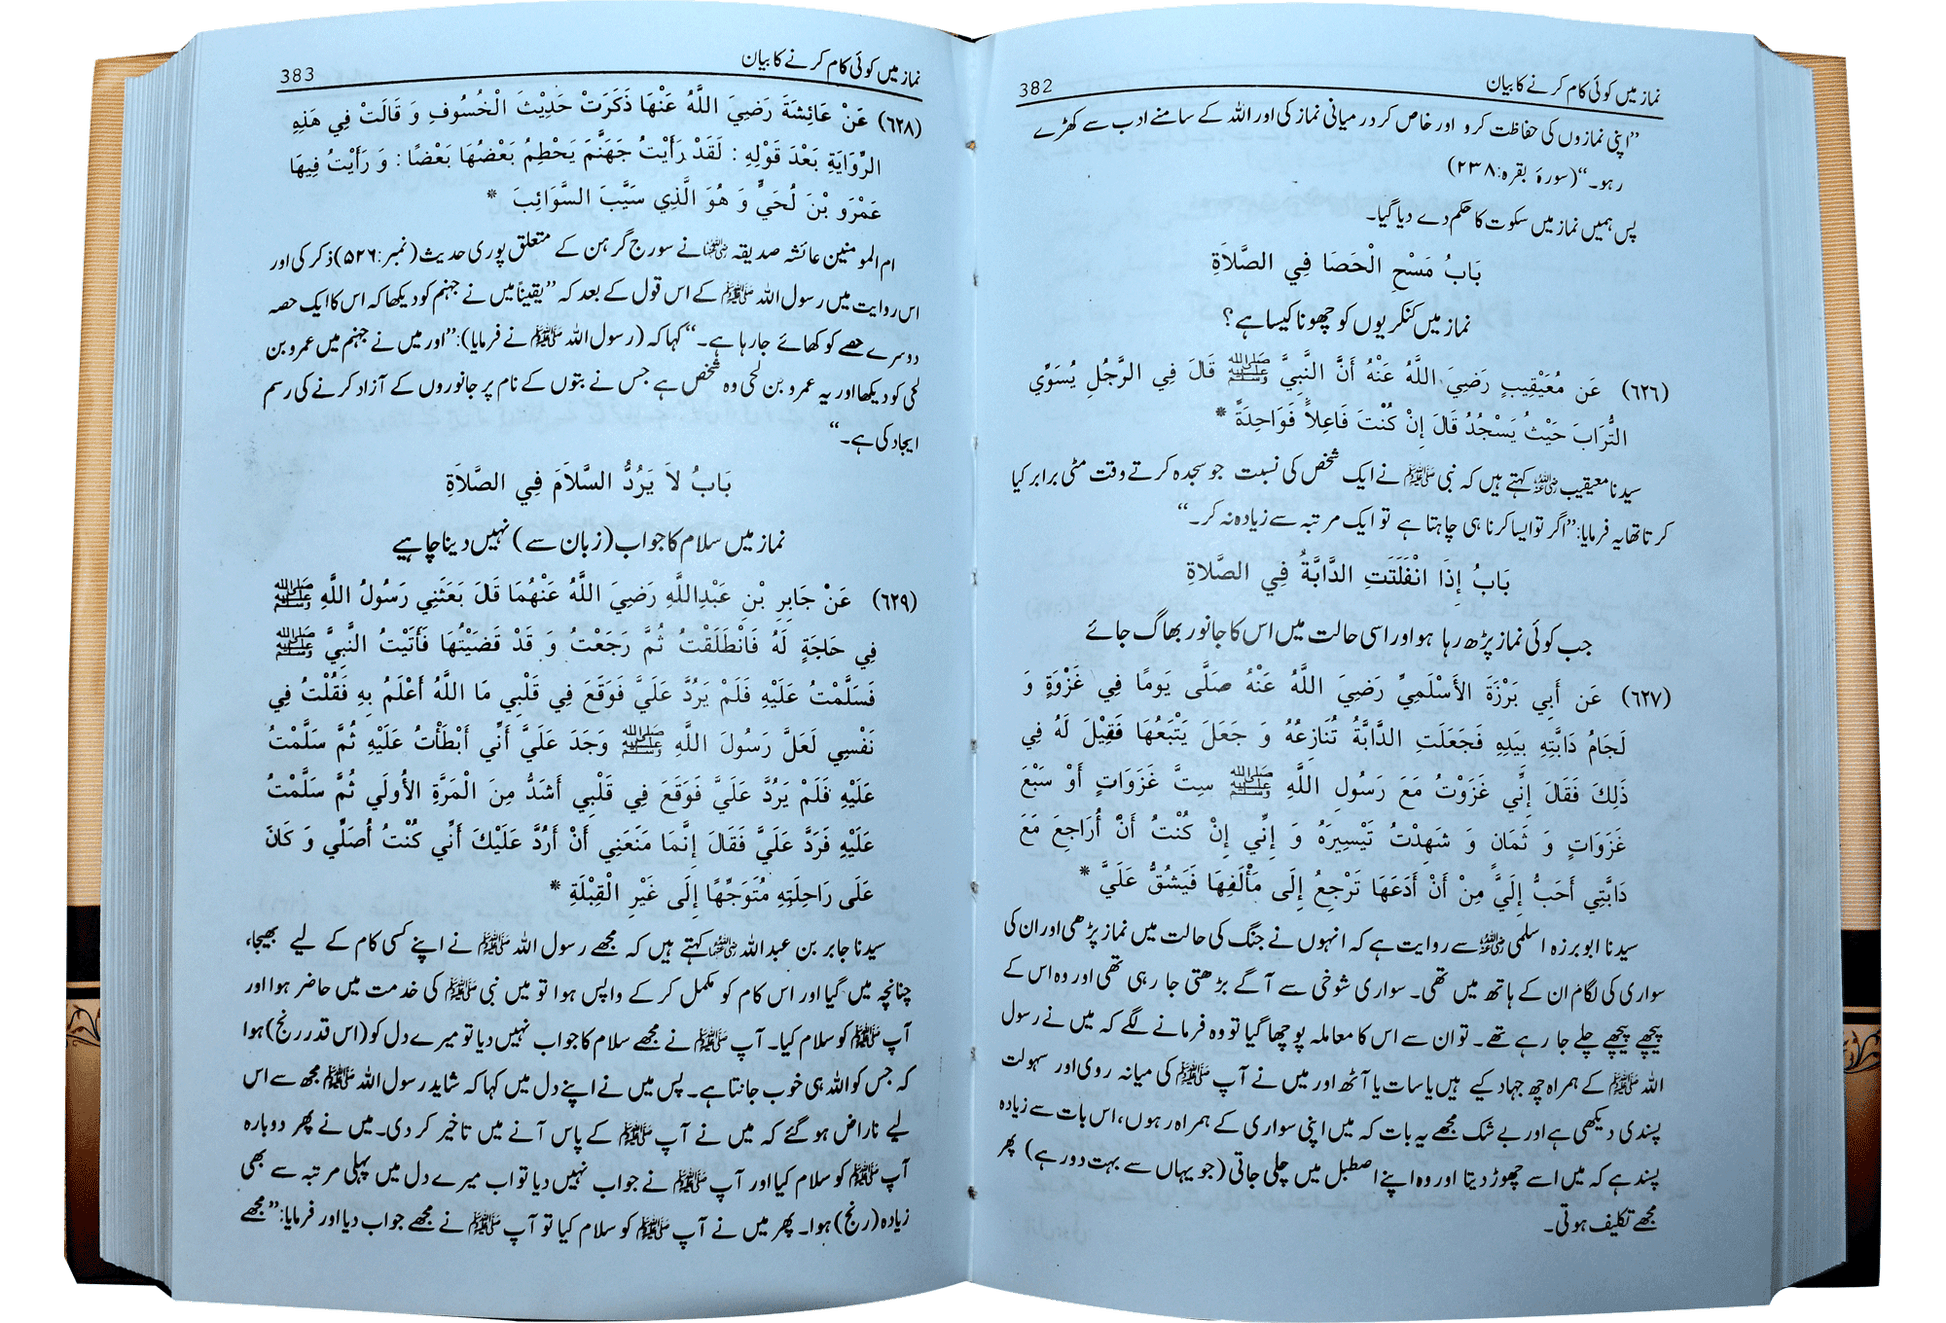 نماز میں کوئی کام کرنے کا بیان
382
”اپنی نمازوں کی حفاظت کرو اور خاص کر درمیانی نماز کی اور اللہ کے سامنے ادب سے کھڑے
رہو۔“ (سورۃ بقرہ:۲۳۸)
پس ہمیں نماز میں سکوت کا حکم دے دیا گیا۔
بَابُ مَسْحِ الْحَصَا فِي الصَّلاَةِ
نماز میں کنکریوں کو چھونا کیسا ہے؟
(٦٢٦) عَن مُعَيْقِيبٍ رَضِيَ اللَّهُ عَنْهُ أَنَّ النَّبِيَّ ﷺ قَالَ فِي الرَّجُلِ يُسَوِّي
التُّرَابَ حَيْثُ يَسْجُدُ قَالَ إِنْ كُنْتَ فَاعِلاً فَوَاحِدَةً *
سیدنا معیقیب رضی اللہ عنہ کہتے ہیں کہ نبی ﷺ نے ایک شخص کی نسبت جو سجدہ کرتے وقت مٹی برابر کیا
کرتا تھا یہ فرمایا: ”اگر تو ایسا کرنا ہی چاہتا ہے تو ایک مرتبہ سے زیادہ نہ کر۔“
بَابُ إِذَا انْفَلَتَتِ الدَّابَّةُ فِي الصَّلاَةِ
جب کوئی نماز پڑھ رہا ہو اور اسی حالت میں اس کا جانور بھاگ جائے
(٦٢٧) عَن أَبِي بَرْزَةَ الأَسْلَمِيِّ رَضِيَ اللَّهُ عَنْهُ صَلَّى يَومًا فِي غَزْوَةٍ وَ
لَجَامُ دَابَّتِهِ بِيَدِهِ فَجَعَلَتِ الدَّابَّةُ تُنَازِعُهُ وَ جَعَلَ يَتْبَعُهَا فَقِيْلَ لَهُ فِي
ذَلِكَ فَقَالَ إِنِّي غَزَوْتُ مَعَ رَسُولِ اللَّهِ ﷺ سِتَّ غَزَوَاتٍ أَوْ سَبْعَ
غَزَوَاتٍ وَ ثَمَانٍ وَ شَهِدْتُ تَيْسِيرَهُ وَ إِنِّي إِنْ كُنْتُ أَنْ أُرَاجِعَ مَعَ
دَابَّتِي أَحَبُّ إِلَيَّ مِنْ أَنْ أَدَعَهَا تَرْجِعُ إِلَى مَأْلَفِهَا فَيَشُقُّ عَلَيَّ *
سیدنا ابوبرزہ اسلمی رضی اللہ عنہ سے روایت ہے کہ انہوں نے جنگ کی حالت میں نماز پڑھی اور ان کی
سواری کی لگام ان کے ہاتھ میں تھی۔ سواری شوخی سے آگے بڑھتی جا رہی تھی اور وہ اس کے
پیچھے پیچھے چلے جا رہے تھے۔ تو ان سے اس کا معاملہ پوچھا گیا تو وہ فرمانے لگے کہ میں نے رسول
اللہ ﷺ کے ہمراہ چھ جہاد کیے ہیں یا سات یا آٹھ اور میں نے آپ ﷺ کی میانہ روی اور سہولت
پسندی دیکھی ہے اور بے شک مجھے یہ بات کہ میں اپنی سواری کے ہمراہ رہوں، اس بات سے زیادہ
پسند ہے کہ میں اسے چھوڑ دیتا اور وہ اپنے اصطبل میں چلی جاتی (جو یہاں سے بہت دور ہے) پھر
مجھے تکلیف ہوتی۔
نماز میں کوئی کام کرنے کا بیان
383
(٦٢٨) عَنْ عَائِشَةَ رَضِيَ اللَّهُ عَنْهَا ذَكَرَتْ حَدِيْثَ الْخُسُوفِ وَ قَالَتْ فِي هَذِهِ
الرِّوَايَةِ بَعْدَ قَوْلِهِ : لَقَدْ رَأَيْتُ جَهَنَّمَ يَحْطِمُ بَعْضُهَا بَعْضًا : وَ رَأَيْتُ فِيهَا
عَمْرَو بْنَ لُحَيٍّ وَ هُوَ الَّذِي سَيَّبَ السَّوَائِبَ *
ام المومنین عائشہ صدیقہ رضی اللہ عنہا نے سورج گرہن کے متعلق پوری حدیث (نمبر:۵۲۶) ذکر کی اور
اس روایت میں رسول اللہ ﷺ کے اس قول کے بعد کہ ”یقیناً میں نے جہنم کو دیکھا کہ اس کا ایک حصہ
دوسرے حصے کو کھائے جا رہا ہے۔“ کہا کہ (رسول اللہ ﷺ نے فرمایا): ”اور میں نے جہنم میں عمرو بن
لحی کو دیکھا اور یہ عمرو بن لحی وہ شخص ہے جس نے بتوں کے نام پر جانوروں کے آزاد کرنے کی رسم
ایجاد کی ہے۔“
بَابُ لاَ يَرُدُّ السَّلاَمَ فِي الصَّلاَةِ
نماز میں سلام کا جواب (زبان سے) نہیں دینا چاہیے
(٦٢٩) عَنْ جَابِرِ بْنِ عَبْدِاللَّهِ رَضِيَ اللَّهُ عَنْهُمَا قَالَ بَعَثَنِي رَسُولُ اللَّهِ ﷺ
فِي حَاجَةٍ لَهُ فَانْطَلَقْتُ ثُمَّ رَجَعْتُ وَ قَدْ قَضَيْتُهَا فَأَتَيْتُ النَّبِيَّ ﷺ
فَسَلَّمْتُ عَلَيْهِ فَلَمْ يَرُدَّ عَلَيَّ فَوَقَعَ فِي قَلْبِي مَا اللَّهُ أَعْلَمُ بِهِ فَقُلْتُ فِي
نَفْسِي لَعَلَّ رَسُولَ اللَّهِ ﷺ وَجَدَ عَلَيَّ أَنِّي أَبْطَأْتُ عَلَيْهِ ثُمَّ سَلَّمْتُ
عَلَيْهِ فَلَمْ يَرُدَّ عَلَيَّ فَوَقَعَ فِي قَلْبِي أَشَدُّ مِنَ الْمَرَّةِ الأُولَي ثُمَّ سَلَّمْتُ
عَلَيْهِ فَرَدَّ عَلَيَّ فَقَالَ إِنَّمَا مَنَعَنِي أَنْ أَرُدَّ عَلَيْكَ أَنِّي كُنْتُ أُصَلِّي وَ كَانَ
عَلَى رَاحِلَتِهِ مُتَوَجِّهًا إِلَى غَيْرِ الْقِبْلَةِ *
سیدنا جابر بن عبداللہ رضی اللہ عنہما کہتے ہیں کہ مجھے رسول اللہ ﷺ نے اپنے کسی کام کے لیے بھیجا،
چنانچہ میں گیا اور اس کام کو مکمل کر کے واپس ہوا تو میں نبی ﷺ کی خدمت میں حاضر ہوا اور
آپ ﷺ کو سلام کیا۔ آپ ﷺ نے مجھے سلام کا جواب نہیں دیا تو میرے دل کو (اس قدر رنج) ہوا
کہ جس کو اللہ ہی خوب جانتا ہے۔ پس میں نے اپنے دل میں کہا کہ شاید رسول اللہ ﷺ مجھ سے اس
لیے ناراض ہو گئے کہ میں نے آپ ﷺ کے پاس آنے میں تاخیر کر دی۔ میں نے پھر دوبارہ
آپ ﷺ کو سلام کیا اور آپ ﷺ نے جواب نہیں دیا تو اب میرے دل میں پہلی مرتبہ سے بھی
زیادہ (رنج) ہوا۔ پھر میں نے آپ ﷺ کو سلام کیا تو آپ ﷺ نے مجھے جواب دیا اور فرمایا: ”مجھے